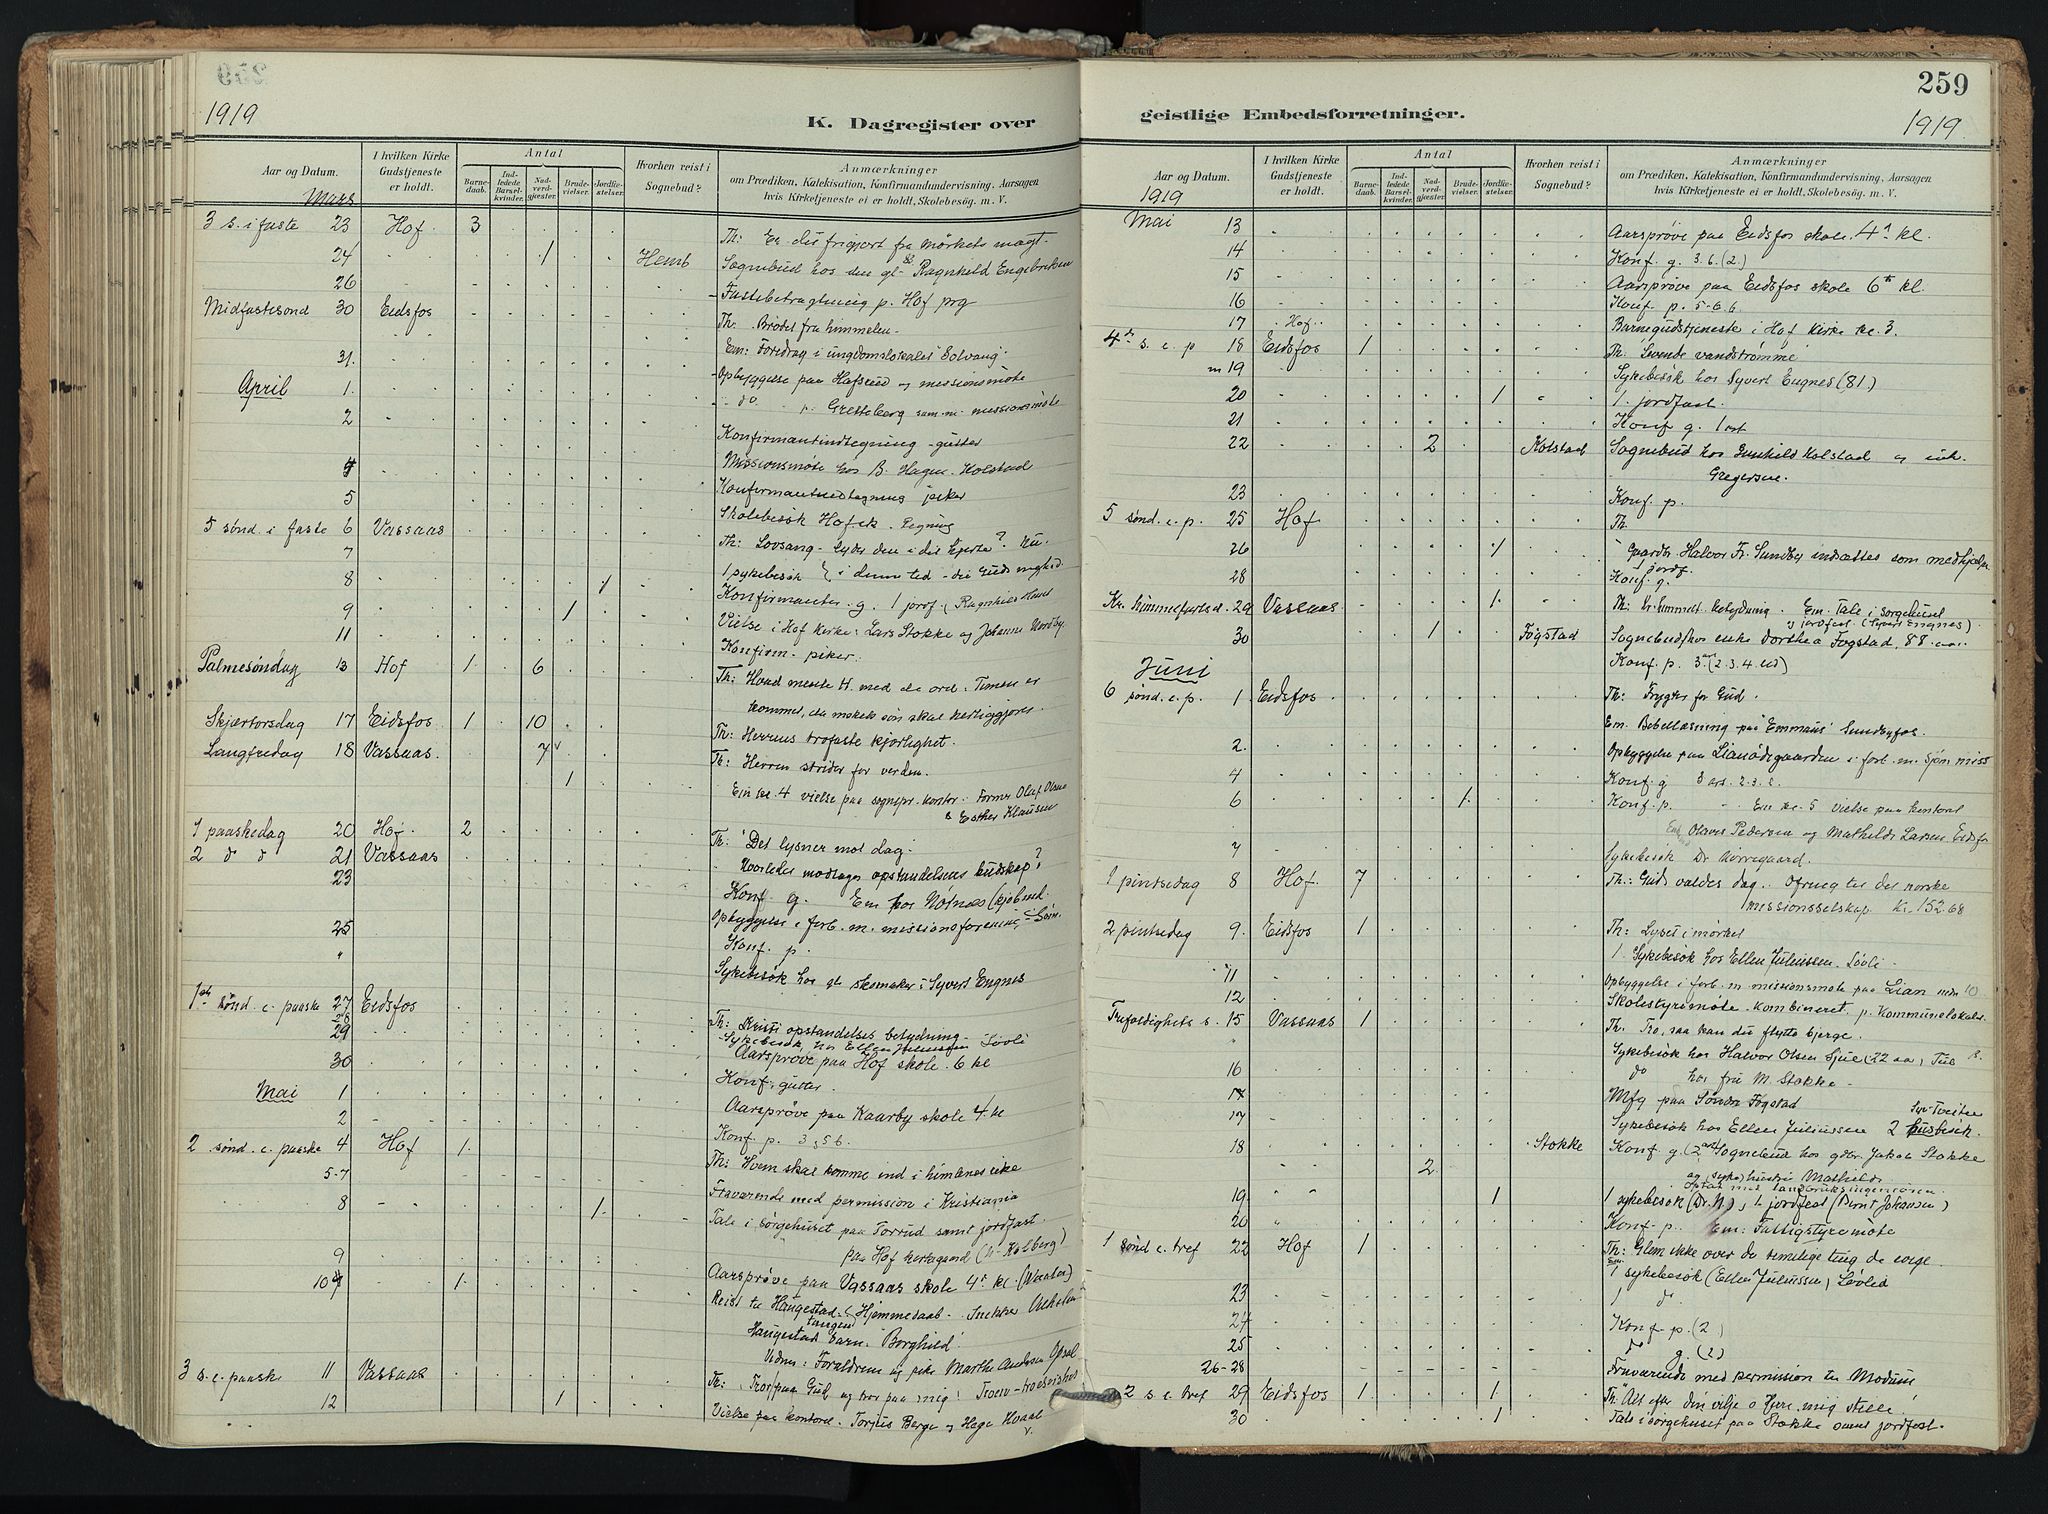 259
1919
K. Dagregister over
Aar og Datum. I hvilken Kirke Gudstjeneste er holdt. Antal Barnedaab. Indledede Barselkvinder. Nadverdgjæster. Brudevielser. Jordfæstelser. Hvorhen reist i Sognebud? Anmærkninger om Prædiken, Katekisation, Konfirmandundervisning, Aarsagen hvis Kirketjeneste ei er holdt, Skolebesøg m. V.
Mars
3 s. i faste 23 Hof 3 Th: Er du frigjort fra mørkets magt.
24 1 Hemb Sognebud hos den gl. Ragnhild Engebretsen
26 Fastebetragtning p. Hof prg
Midfastesønd 30 Eidsfos Th: Brødet fra himmelen
Em: Foredrag i ungdomslokalet Solvang
31. Opbyggelse paa Hafsrud og missionsmøte
April 1. do p. Gretteberg sam. m. missionsmøte
2 Konfirmantindtegning - gutter
4 Missionsmøte hos B. Hagen Holstad
5 Konfirmantindtegning piker
Skolebesøk Hof sk. Tegning
5 sønd. i faste 6 Vassaas Th: Lovsang - lyder den i dit hjerte? Nu
7 1 sykebesøk i denne tid - din Guds
8 1 Konfirmanter g. 1 jordf.
9 1 Vielse i Hof kirke: Lars Stokke og Johanne Nordby.
11 Konfirm. piker.
Palmesøndag 13 Hof 1 6 Th: Hvad mente H. med de ord: Timen er
kommet, da menskets søn skal herliggjøres
Skjærtorsdag 17 Eidsfos 1 10 Th: Herrens trofaste kjærlighet.
Langfredag 18 Vassaas. 7 Th: Herren strider for verden.
1 Em kl. 4 vielse paa sognepr. kontor: Former Olaf Olsen
& Esther Klausen
1 paaskedag 20 Hof. 2 Th: Det lysner mot dag.
2 d d 21 Vassaas Hvorledes modtages opstandelsens budskap?
23 Konf. g. Em hos Nøtnæs (kjøbmd.
Opbyggelse i forb. m. missionsforening
25 Konf. p.
" Sykebesøk hos gl. skomaker Syvert Engnes
1ste sønd. e. paaske 27 Eidsfos Th: Kristi opstandelses betydning
28 Sykebesøk hos Ellen Juliussen Løvli
29 Aarsprøve paa Hof skole. 6 kl
30 Konf. gutter.
Mai 1 Aarsprøve paa Kaarby skole 4 kl
2 Konf. p. 3 5 6.
2 sønd. e. paaske 4 Hof 1. Th: Hvem skal komme ind i himlenes rike
5-7 Fraværende med permission i Kristiania
8 1. Tale i sørgehuset paa Torrud samt jordfæst.
paa Hof kirkegaard
9 Aarsprøve paa Vassaas skole 4de kl.
10 1. Reist til Haugestad (Hjemmedaab - Snekker
Haugestad barn "Borghild"
Vidner: Forældrene og pike Marthe Andersen Opsal
3 s. e. paaske 11 Vassaas Th: Tror paa Gud og tror paa mig
12 1 Vielse paa kontoret Torjus Berge og Hege Hvaal
259
geistlige Embedsforretninger.
1919.
Aar og Datum. I hvilken Kirke Gudstjeneste er holdt. Antal Barnedaab. Indledede Barselkvinder. Nadverdgjæster. Brudevielser. Jordfæstelser. Hvorhen reist i Sognebud? Anmærkninger om Prædiken, Katekisation, Konfirmandundervisning, Aarsagen hvis Kirketjeneste ei er holdt, Skolebesøg m. V.
1919
Mai 13 Aarsprøve paa Eidsfos skole. 4de kl.
14 Konf g. 3. 6. (2.)
15 Aarsprøve paa Eidsfos skole 6te kl.
16 Konf. p. 5-6 6
17 Hof Barnegudstjeneste i Hof kirke kl. 3.
4de s. e. p 18 Eidsfos 1 Th: Levende vandstrømme
19 Sykebesøk hos Syvert Engnes (81)
20 1 1. jordfæst.
21 Konf g.
22 2 Kolstad Sognebud hos Gunhild Kolstad og enk.
Gregersen.
23 Konf. p.
5 sønd. e. p. 25 Hof Th.
26 1 Gaardbr. Halvor Fr. Sundby indsættes som medhjælper
jordf.
28 Konf. g.
Kr. himmelfartsd. 29 Vassaas 1. Th: Kr. himmelf. betydning. Em. Tale i sørgehuset
og jordfæst. (Syvert Engnes).
30 1 Fogstad Sognebud hos enke Dorthea Fogstad, 88 aar.
Konf. p. 3 (2. 3. 4. ud)
Juni
6 sønd. e. p. 1 Eidsfos Th: Frygter for Gud.
Em. Bibellæsning paa "Emmaus" Sundbyfos.
2. Opbyggelse paa Lianødegaarden i forb. m. Sjøm. miss
4 Konf. g
6 1. Konf. p. Em kl. 5 Vielse paa kontoret
Olaves Pedersen og Mathilde Larsen Eidsfos
7 Sykebesøk Dr. Nørregaard.
1 pintsedag 8 Hof. 7 Th: Guds vældes dag. Ofring til det norske
missionsselskap. Kr. 152.68
2 pintsedag 9. Eidsfos 1 Th: Lyset i mørket
1 Sykebesøk hos Ellen Juliussen. Løvli.
11 Opbyggelse i forb. m. missionsmøte paa Lian
12 Skolestyremøte kombineret p. kommunelokalet.
Trefoldighets s. 15 Vassaas 1 Th. Tro, saa kan du flytte bjerge.
" Sykebesøk hos Halvor Olsen Sjue (22 aa)
16 do hos fru M. Stokke
17 Mfg paa Søndre Fogstad
17 Sykebesøk hos Ellen Juliussen 2 husbesøk.
18 2 Stokke Konf g. Sognebud hos gdbr. Jakob Stokke
og hustru Mathilde
19 1 1 sykebesøk (Dr. N), 1 jordfæst (Bernt Johansen)
20 Konf. p. Em: Fattigstyremøte
1 sønd e. tref 22 Hof 1 Th: Glem ikke over de timelige ting de evige.
Em. 1 sykebesøk (Ellen Juliussen, Løvlid
23 1 do
24 Konf. p. (2.)
25 do g. (2)
26-28 Fraværende med permission til Modum
2 s. e. tref 29 Eidsfos 1 1 Th: Alt efter din vilje o Herre, mig stille.
30 1 Tale i sørgehuset paa Stokke samt jordfæst.